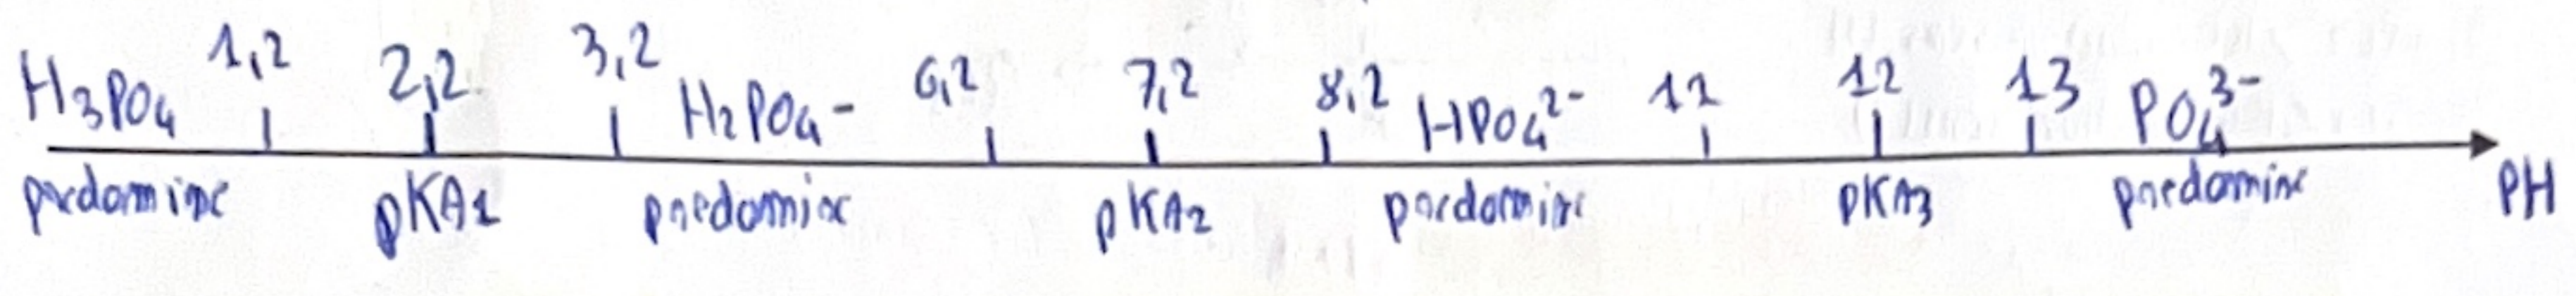 H₃PO₄ 1,2 2,2 3,2 H₂PO₄⁻ 6,2 7,2 8,2 HPO₄²⁻ 11 12 13 PO₄³⁻
predomine pKA1 predomine pKA2 predomine pKA3 predomine PH